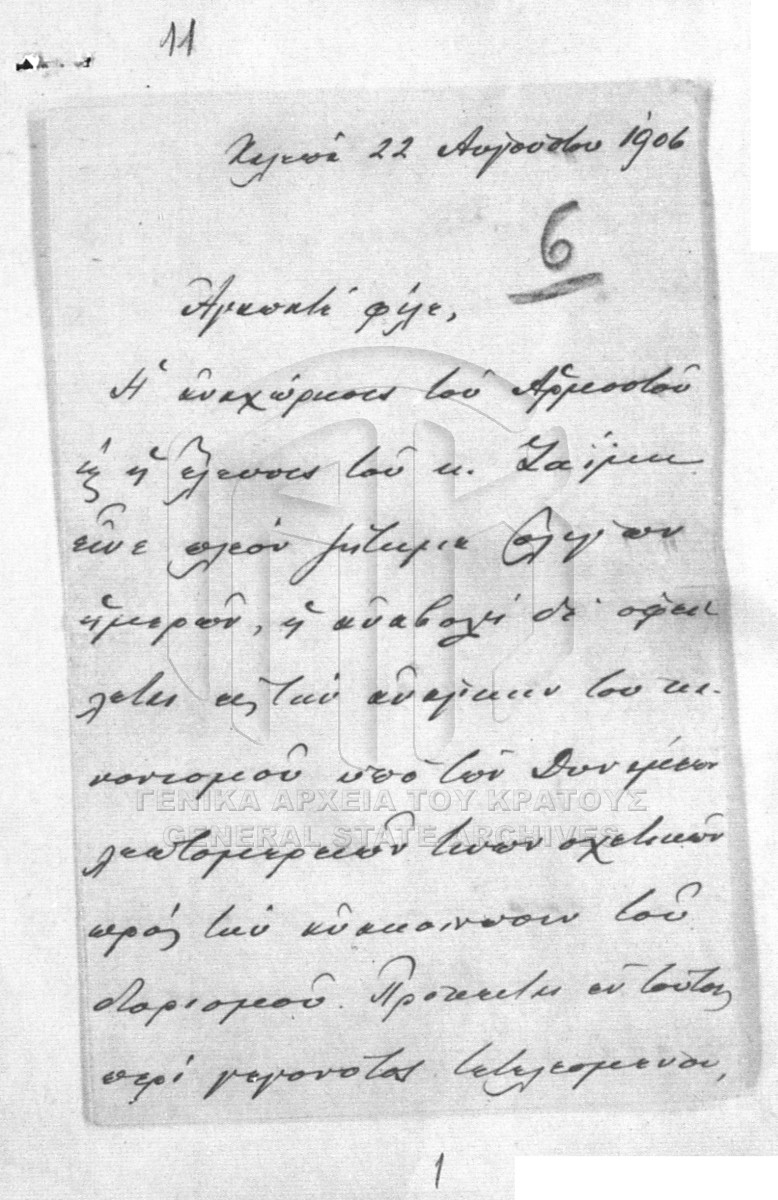 11
Χαλέπα 22 Αυγούστου 1906
6
Αγαπητέ φίλε,
Η αναχώρησις του Αρμοστού
κ η έλευσις του κ. Ζαΐμη
είνε πλέον ζήτημα ολίγων
ημερών, η αναβολή δε οφεί
λεται εις την ανάγκην του κα-
νονισμού υπό των Δυνάμεων
ΓΕΝΙΚΑ ΑΡΧΕΙΑ ΤΟΥ ΚΡΑΤΟΥΣ
GENERAL STATE ARCHIVES
λεπτομερειών τινων σχετικών
προς την ανακοίνωσιν του
διορισμού. Πρόκειται εν τούτοις
περί γεγονότος τετελεσμένου,
1